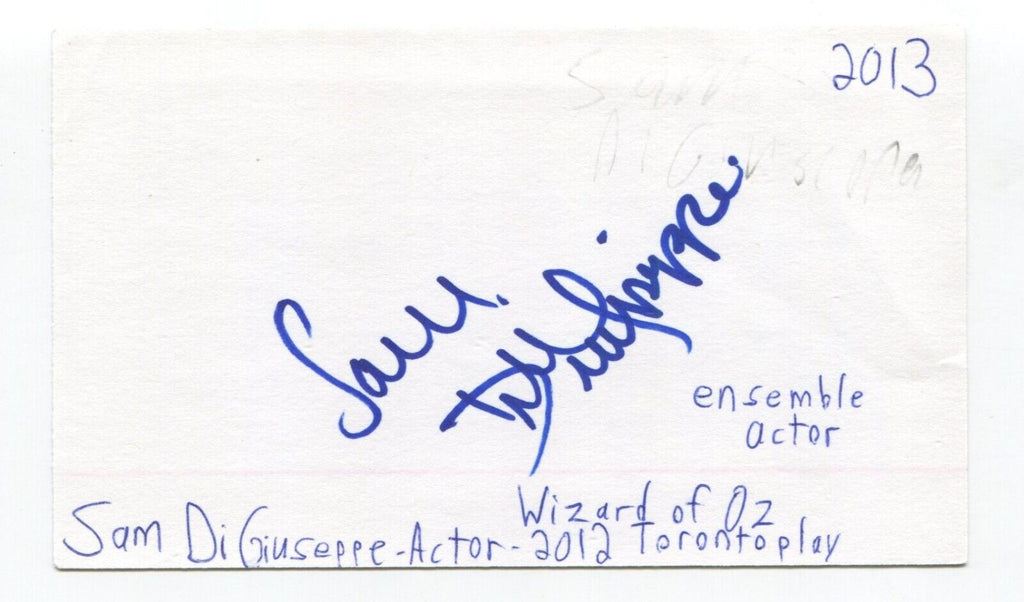 2013
Sam
DiGiuseppe
Sam
DiGiuseppe
ensemble
actor
Wizard of Oz
Sam DiGiuseppe-Actor-2012 Toronto play